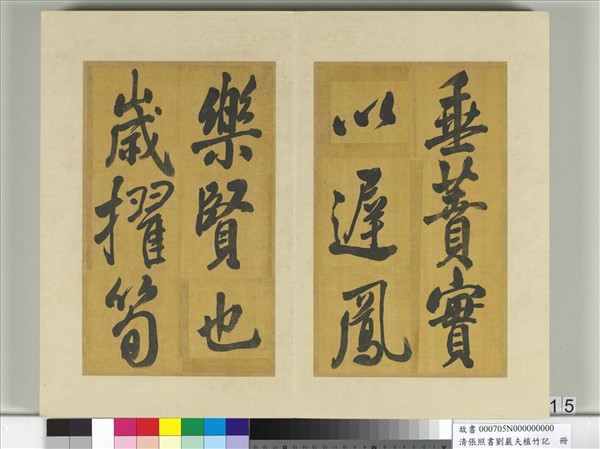 垂蕡實
以遲鳳
樂賢也
歲擢筍
15
故書 000705N000000000
清張照書劉巖夫植竹記 冊